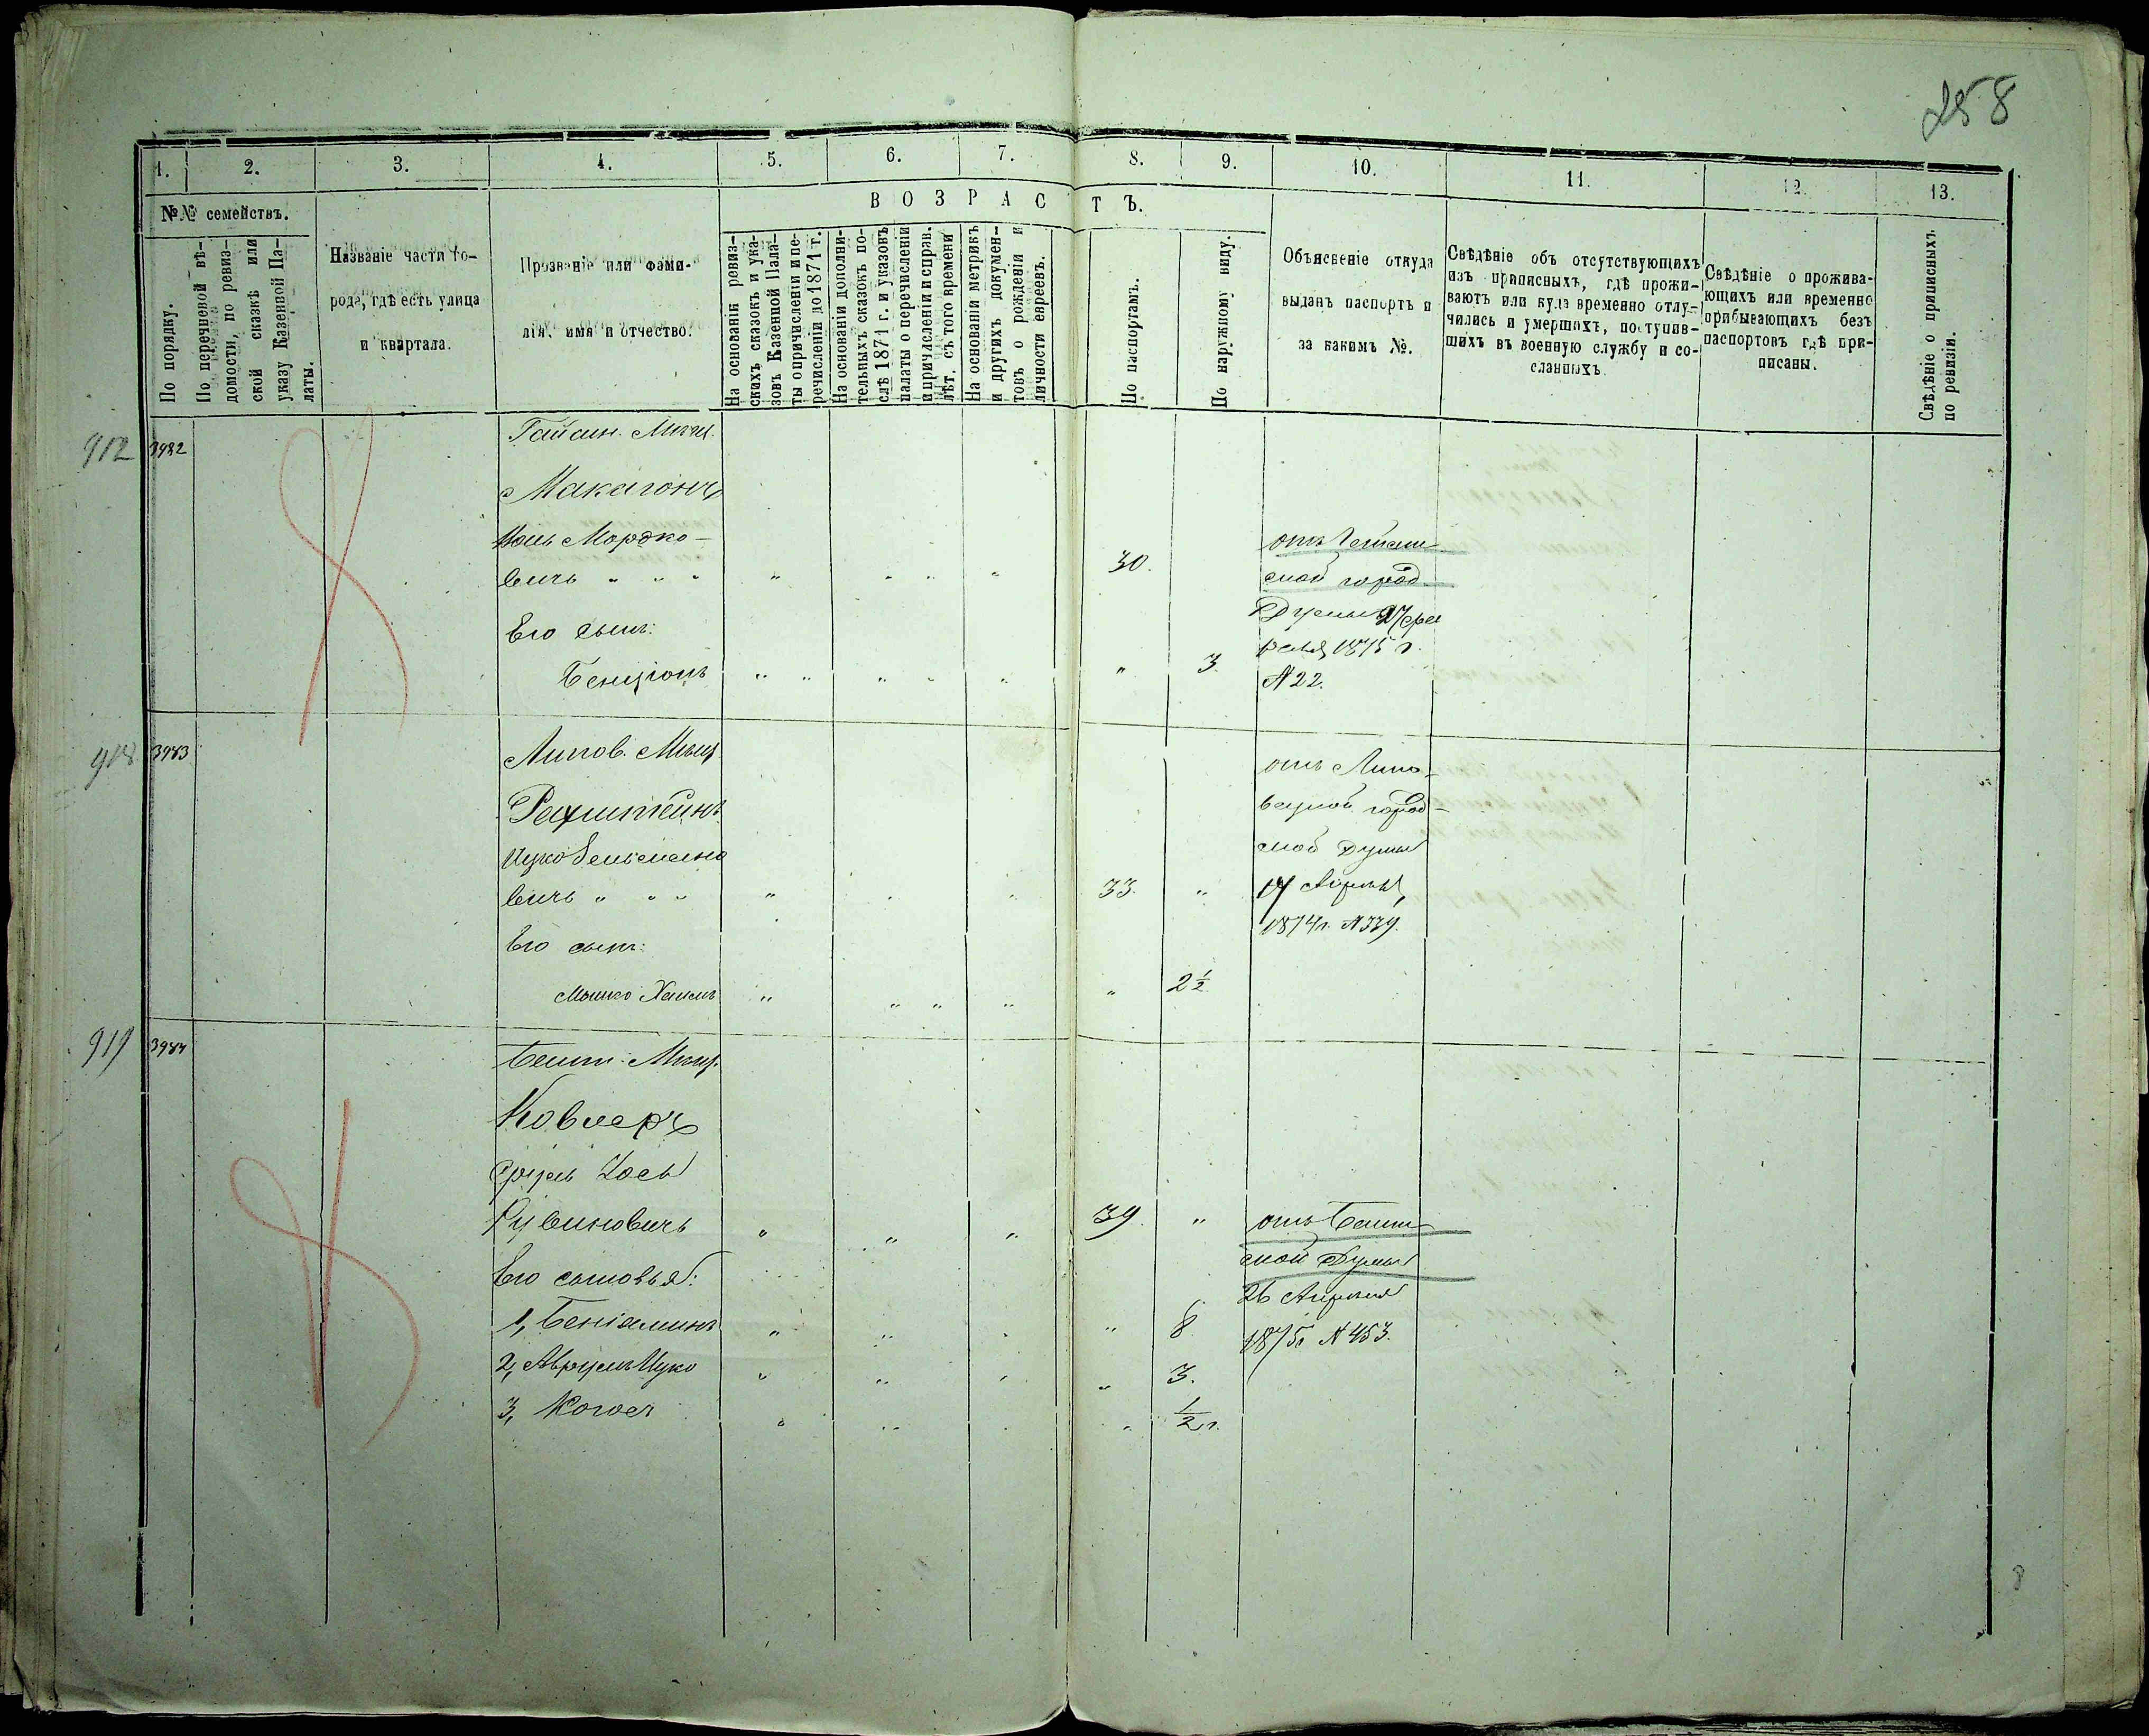 258
1. 2. 3. 4. 5. 6. 7. 8. 9. 10. 11. 12. 13.
№№ семействъ.
ВОЗРАСТЪ.
По порядку.
По перечневой вѣ-
домости, по ревиз-
ской сказкѣ или
указу Казенной Па-
латы.
Названіе части го-
рода, гдѣ есть улица
и квартала.
Прозваніе или фами-
лія, имя и отчество.
На основаніи ревиз-
скихъ сказокъ и ука-
зовъ Казенной Пала-
ты о причисленіи и пе-
речисленіи до 1871 г.
На основаніи дополни-
тельныхъ сказокъ по-
слѣ 1871 г. и указовъ
палаты о перечисленіи
и причисленіи и справ.
лѣт. съ того времени
На основаніи метрикъ
и другихъ докумен-
товъ о рожденіи и
личности евреевъ.
По паспортамъ.
По наружному виду.
Объясненіе откуда
выданъ паспортъ и
за какимъ №.
Свѣдѣніе объ отсутствующихъ
изъ приписныхъ, гдѣ прожи-
ваютъ или куда временно отлу-
чились и умершихъ, поступив-
шихъ въ военную службу и со-
сланныхъ
Свѣдѣніе о прожива-
ющихъ или временно
прибывающихъ безъ
паспортовъ гдѣ при-
писаны.
Свѣдѣніе о приписныхъ
по ревизіи.
912 3982 Гайсин. Мѣщ.
Макагонъ
Мордко-
вичъ " " " " " " " 30. отъ
ской город.
Думы
Его сынъ:
1875 г.
Бенціонъ " " " " " " 3. № 22.
918 3983 Липов. Мѣщ.
отъ Липо-
Рахштейнъ
вецкой город-
Ицко
ской Думы
вичъ " " " " " " 33. " 14 Апрѣля
1874г. № 339.
Его сынъ:
Мошко Хаимъ " " " " " 2½
919 3984 Мѣщ.
Ковлеръ
Сруль Іось
Рувиновичъ " " " 39. " отъ
ской Думы
Его сыновья:
26 Апрѣля
1, Беніаминъ " " " " 8. 1875г № 453.
2, Аврумъ Ицко " " " " 3.
3, " " " " ½ г.
8